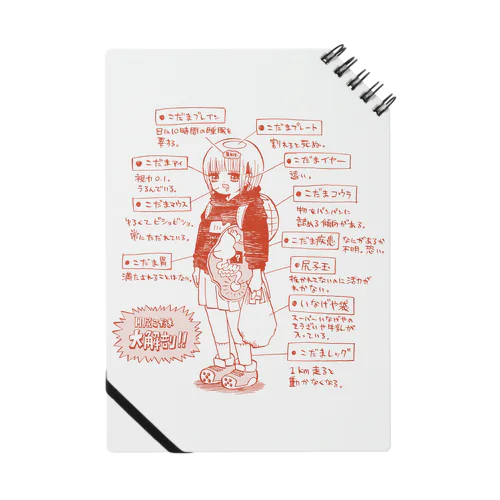 ●こだまブレイン
日に10時間の睡眠を
要する。
●こだまプレート
割れると死ぬ。
●こだまアイ
視力0.1。
うるんでいる。
●こだまイヤー
遠い。
●こだまマウス
ゆるくてビショビショ。
常にただれている。
●こだまコウラ
物をパンパンに
詰める傾向がある。
●こだま疾患
なにがあるか
不明。恐い。
●こだま胃
満たされることはない。
●尻子玉
抜かれてないのに活力が
わかない。
●いなげや袋
スーパーいなげやの
そうざいや牛乳が
入っている。
大解剖!!
●こだまレッグ
1km走ると
動かなくなる。